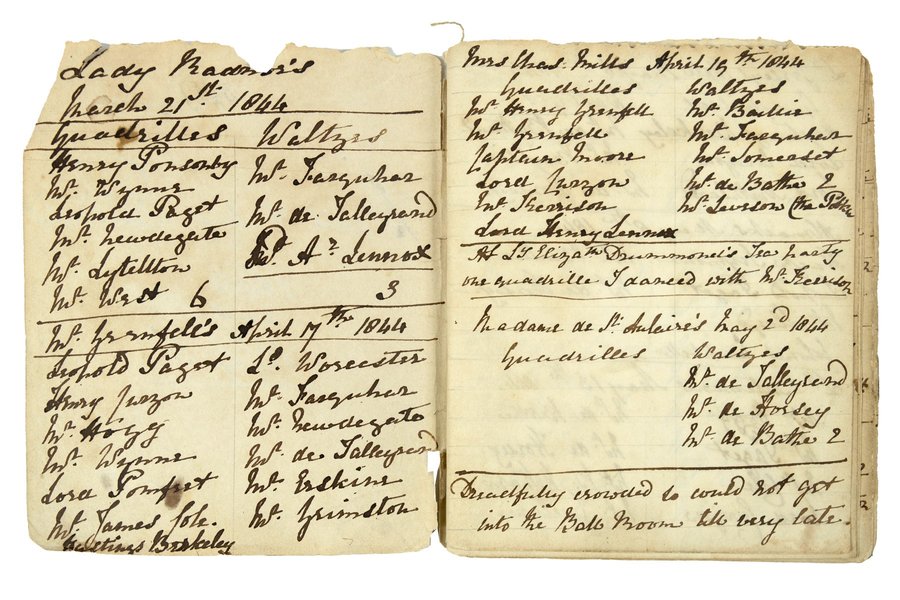 Lady Radnor's
March 21st. 1844
Quadrilles Waltzes
Henry Ponsonby
Mr. Wynne
Leopold Paget
Mr. Newdegate
Mr. Lyttelton
Mr. West 6
Mr. Farquhar
Mr. de Talleyrand
Ld. Ar. Lennox
3
Mr. Grenfell's April 17th 1844
Leopold Paget
Henry Curzon
Mr. Hogg
Mr. Wynne
Lord Pomfret
Mr. James Cole.
Hastings Berkeley
Ld. Worcester
Mr. Farquhar
Mr. Newdegate
Mr. de Talleyrand
Mr. Erskine
Mr. Grimston
Mrs Chas. Mills April 19th 1844
Quadrilles Waltzes
Mr. Henry Grenfell
Mr. Grenfell
Captain Moore
Lord Curzon
Mr. Kerrison
Lord Henry Lennox
Mr. Bailie
Mr. Farquhar
Mr. Somerset
Mr. de Bathe 2
Mr. Leveson (the
At Ly. Elizath. Drummond's Tea party
one quadrille I danced with Mr. Kerrison
Madame de St. Aulaire's May 2d 1844
Quadrilles Waltzes
Mr. de Talleyrand
Mr. de Horsey
Mr. de Bathe 2
Dreadfully crowded so could not get
into the Ball Room till very late.